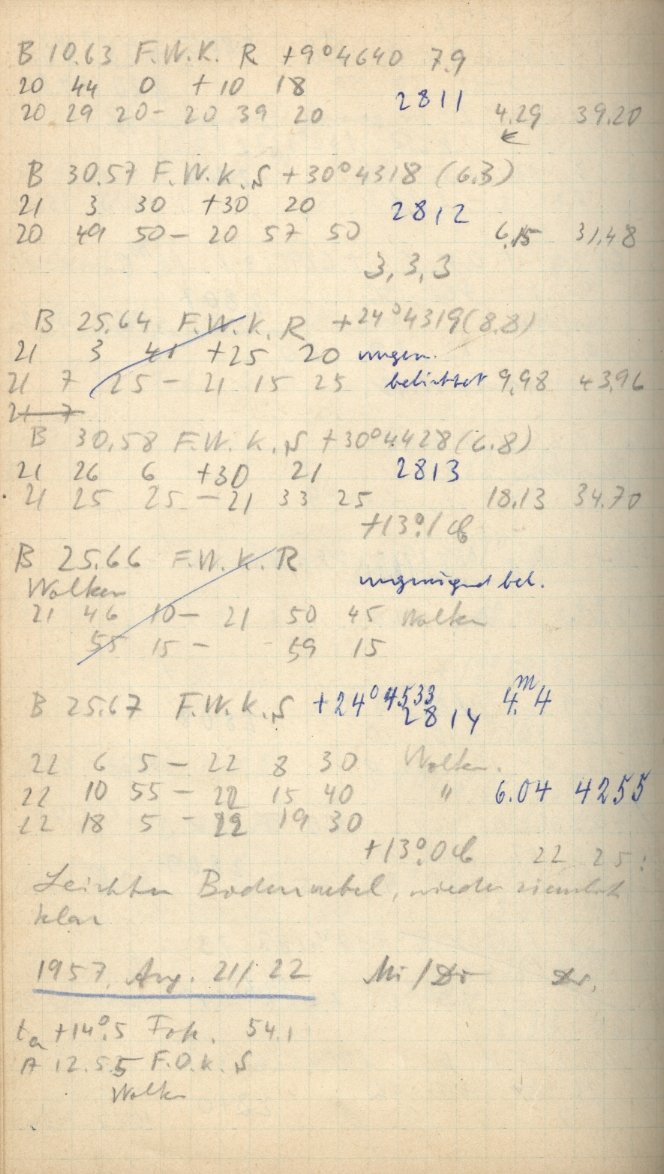 B 10.63 F.W.K. R +9°4640 7.9
20 44 0 +10 18 2811
20 29 20 - 20 39 20 4.29 39.20
B 30.57 F.W.K. S +30°4318 (6.3)
21 3 30 +30 20 2812
20 49 50 - 20 57 50 6.15 31.48
3, 3, 3
B 25.64 F.W.K. R +24°4319 (8.8)
21 3 41 +25 20 ungen.
21 7 25 - 21 15 25 belichtet 9.98 43.96
21 7
B 30.58 F.W.K. S +30°4428 (6.8)
21 26 6 +30 21 2813
21 25 25 - 21 33 25 18.13 34.70
+13°.1
B 25.66 F.W.K. R
Wolken ungenügend bel.
21 46 10 - 21 50 45 Wolken
55 15 - 59 15
B 25.67 F.W.K. S +24°4533 4.m4
2814
22 6 5 - 22 8 30 Wolken.
22 10 55 - 22 15 40 " 6.04 42.55
22 18 5 - 22 19 30
+13°.0 22 25:
Leichter Bodennebel, wieder ziemlich
klar
1957, Aug. 21/22 Mi/Do Dr.
ta +14°.5 Fok. 54.1
A 12.55 F.O.K. S
Wolken